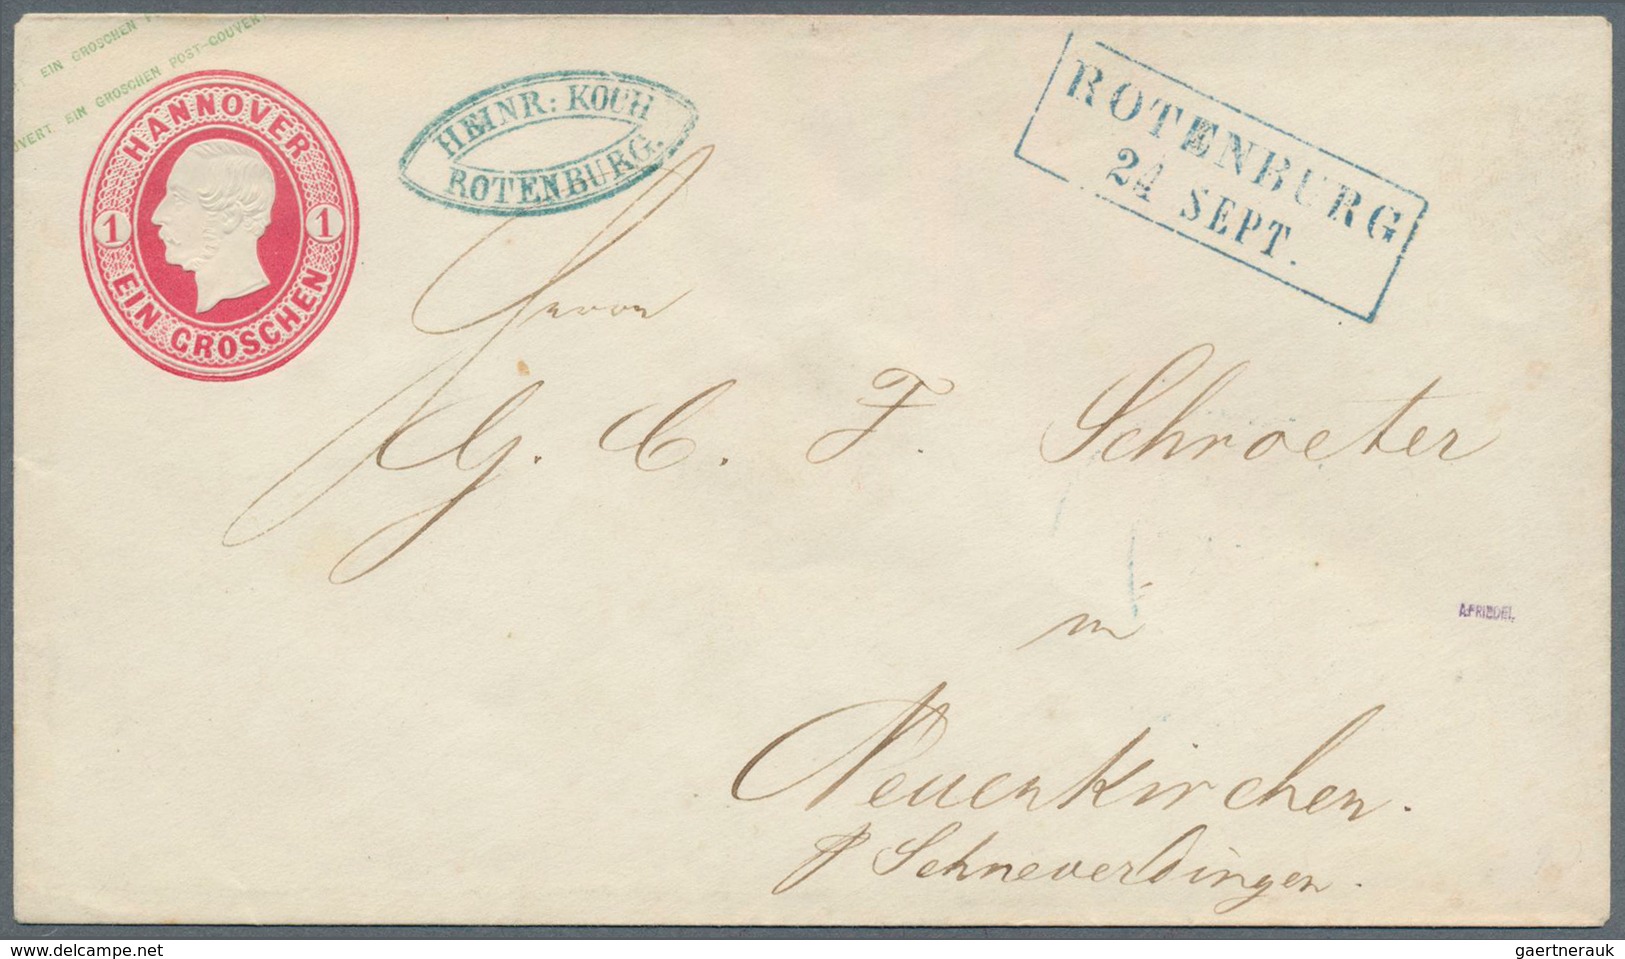 EIN GROSCHEN
EIN GROSCHEN POST-COUVERT
HANNOVER
1 1
EIN GROSCHEN
HEINR: KOCH
ROTENBURG.
ROTENBURG
24 SEPT.
Herrn
G. C. F. Schroeter
in
A.FRIEDEL.
Neuenkirchen.
p Schneverdingen.
www.delcampe.net
gaertnerauk